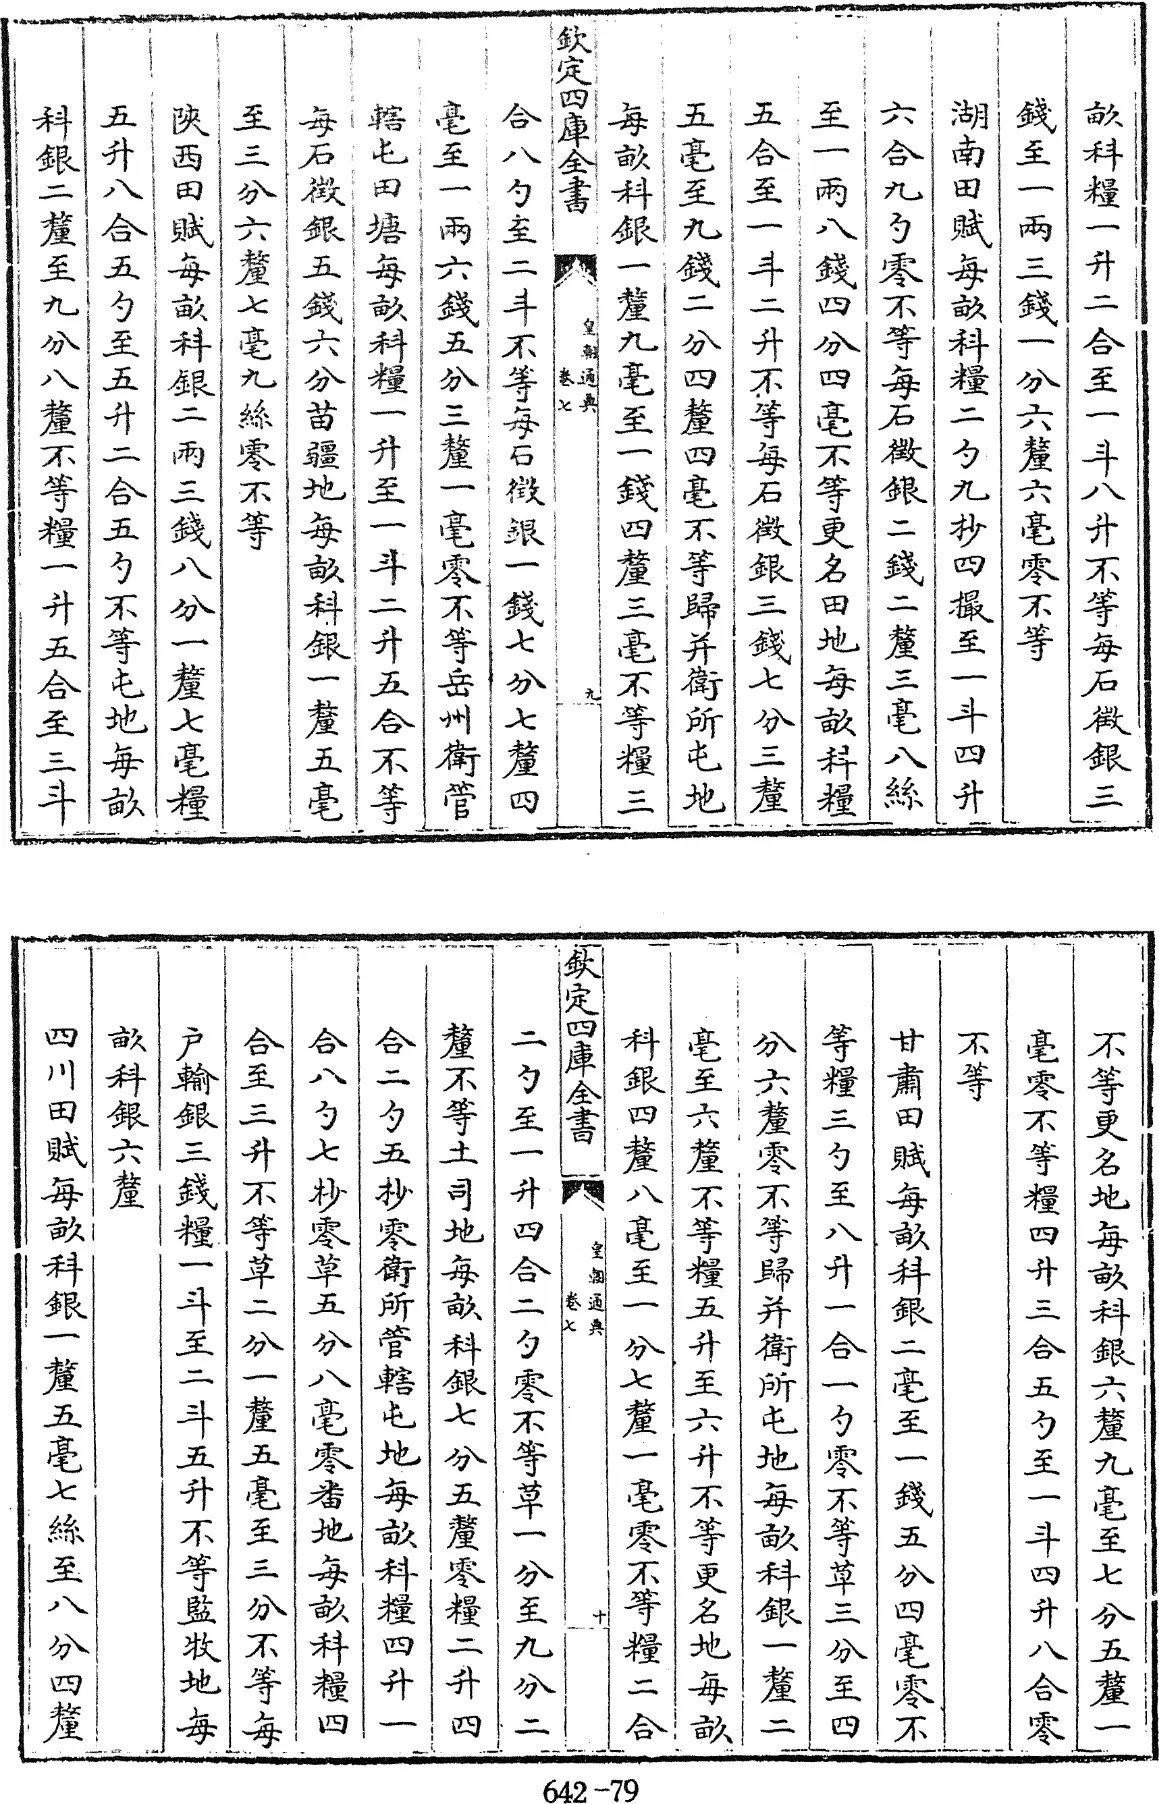 畝科糧一升二合至一斗八升不等每石徴銀三
錢至一兩三錢一分六釐六毫零不等
湖南田賦每畝科糧二勺九抄四撮至一斗四升
六合九勺零不等每石徴銀二錢二釐三毫八絲
至一兩八錢四分四毫不等更名田地每畝科糧
五合至一斗二升不等每石徴銀三錢七分三釐
五毫至九錢二分四釐四毫不等歸并衛所屯地
每畝科銀一釐九毫至一錢四釐三毫不等糧三
欽定四庫全書
皇朝通典
卷七
九
合八勺至二斗不等每石徴銀一錢七分七釐四
毫至一兩六錢五分三釐一毫零不等岳州衛管
轄屯田塘每畝科糧一升至一斗二升五合不等
每石徴銀五錢六分苗疆地每畝科銀一釐五毫
至三分六釐七毫九絲零不等
陝西田賦每畝科銀二兩三錢八分一釐七毫糧
五升八合五勺至五升二合五勺不等屯地每畝
科銀二釐至九分八釐不等糧一升五合至三斗
不等更名地每畝科銀六釐九毫至七分五釐一
毫零不等糧四升三合五勺至一斗四升八合零
不等
甘肅田賦每畝科銀二毫至一錢五分四毫零不
等糧三勺至八升一合一勺零不等草三分至四
分六釐零不等歸并衛所屯地每畝科銀一釐二
毫至六釐不等糧五升至六升不等更名地每畝
科銀四釐八毫至一分七釐一毫零不等糧二合
欽定四庫全書
皇朝通典
卷七
十
二勺至一升四合二勺零不等草一分至九分二
釐不等土司地每畝科銀七分五釐零糧二升四
合二勺五抄零衛所管轄屯地每畝科糧四升一
合八勺七抄零草五分八毫零番地每畝科糧四
合至三升不等草二分一釐五毫至三分不等每
户輸銀三錢糧一斗至二斗五升不等監牧地每
畝科銀六釐
四川田賦每畝科銀一釐五毫七絲至八分四釐
642-79